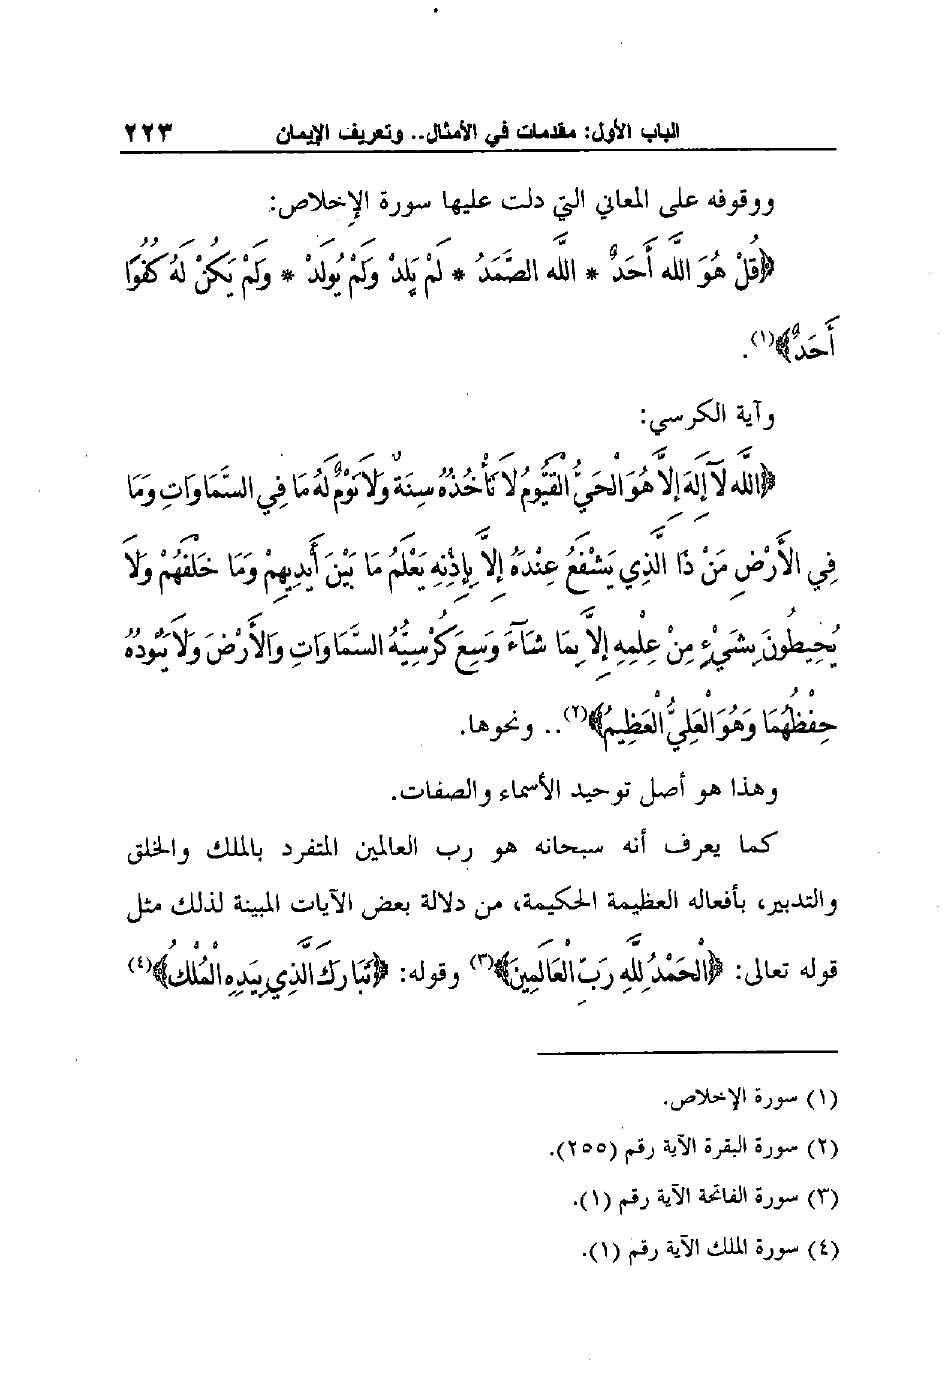 الباب الأول: مقدمات في الأمثال.. وتعريف الإيمان ٢٢٣
ووقوفه على المعاني التي دلت عليها سورة الإخلاص:
﴿قُلْ هُوَ اللَّهُ أَحَدٌ * اللَّهُ الصَّمَدُ * لَمْ يَلِدْ وَلَمْ يُولَدْ * وَلَمْ يَكُنْ لَهُ كُفُوًا
أَحَدٌ﴾(١).
وآية الكرسي:
﴿اللَّهُ لَآ إِلَهَ إِلاَّ هُوَ الْحَيُّ الْقَيُّومُ لَا تَأْخُذُهُ سِنَةٌ وَلَا نَوْمٌ لَهُ مَا فِي السَّمَاوَاتِ وَمَا
فِي الْأَرْضِ مَنْ ذَا الَّذِي يَشْفَعُ عِنْدَهُ إِلاَّ بِإِذْنِهِ يَعْلَمُ مَا بَيْنَ أَيْدِيهِمْ وَمَا خَلْفَهُمْ وَلَا
يُحِيطُونَ بِشَيْءٍ مِنْ عِلْمِهِ إِلاَّ بِمَا شَآءَ وَسِعَ كُرْسِيُّهُ السَّمَاوَاتِ وَالْأَرْضَ وَلَا يَئُودُهُ
حِفْظُهُمَا وَهُوَ الْعَلِيُّ الْعَظِيمُ﴾(٢).. ونحوها.
وهذا هو أصل توحيد الأسماء والصفات.
كما يعرف أنه سبحانه هو رب العالمين المتفرد بالملك والخلق
والتدبير، بأفعاله العظيمة الحكيمة، من دلالة بعض الآيات المبينة لذلك مثل
قوله تعالى: ﴿الْحَمْدُ لِلَّهِ رَبِّ الْعَالَمِينَ﴾(٣) وقوله: ﴿تَبَارَكَ الَّذِي بِيَدِهِ الْمُلْكُ﴾(٤)
(١) سورة الإخلاص.
(٢) سورة البقرة الآية رقم (٢٥٥).
(٣) سورة الفاتحة الآية رقم (١).
(٤) سورة الملك الآية رقم (١).